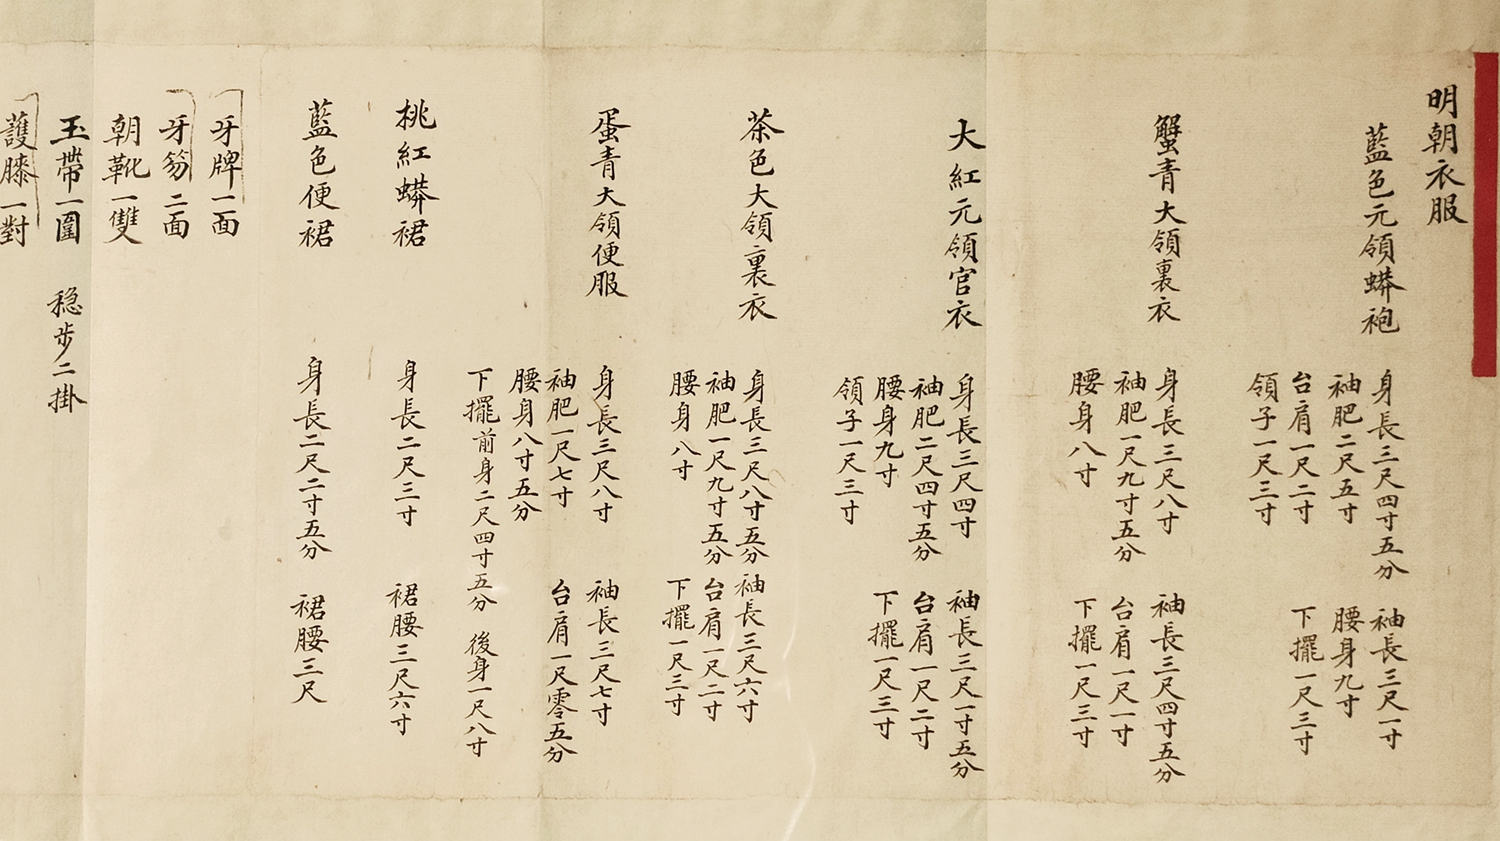 明朝衣服
藍色元領蟒袍
身長三尺四寸五分 袖長三尺一寸
袖肥二尺五寸 腰身九寸
台肩一尺二寸 下擺一尺三寸
領子一尺三寸
蟹青大領裏衣
身長三尺八寸 袖長三尺四寸五分
袖肥一尺九寸五分 台肩一尺一寸
腰身八寸 下擺一尺三寸
大紅元領官衣
身長三尺四寸 袖長三尺一寸五分
袖肥二尺四寸五分 台肩一尺二寸
腰身九寸 下擺一尺三寸
領子一尺三寸
茶色大領裏衣
身長三尺八寸五分 袖長三尺六寸
袖肥一尺九寸五分 台肩一尺二寸
腰身八寸 下擺一尺三寸
蛋青大領便服
身長三尺八寸 袖長三尺七寸
袖肥一尺七寸 台肩一尺零五分
腰身八寸五分
下擺前身二尺四寸五分 後身一尺八寸
桃紅蟒裙
身長二尺三寸 裙腰三尺六寸
藍色便裙
身長二尺二寸五分 裙腰三尺
牙牌一面
牙笏二面
朝靴一雙
玉帶一圍 穏步二掛
護膝一對